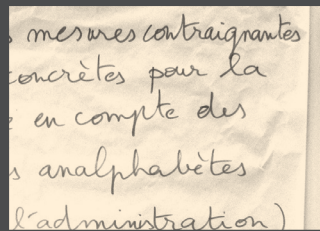 mesures contraignantes
concrètes pour la
en compte des
analphabètes
l'administration)